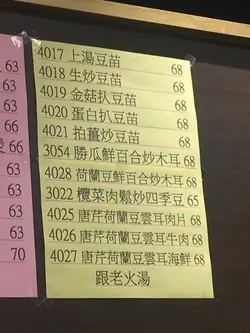 4017 上湯豆苗 68
4018 生炒豆苗 68
4019 金菇扒豆苗 68
4020 蛋白扒豆苗 68
4021 拍薑炒豆苗 68
3054 勝瓜鮮百合炒木耳 68
4028 荷蘭豆鮮百合炒木耳 68
3022 欖菜肉鬆炒四季豆 65
4025 唐芹荷蘭豆雲耳肉片 68
4026 唐芹荷蘭豆雲耳牛肉 68
4027 唐芹荷蘭豆雲耳海鮮 68
跟老火湯
63
63
66
66
63
63
63
70